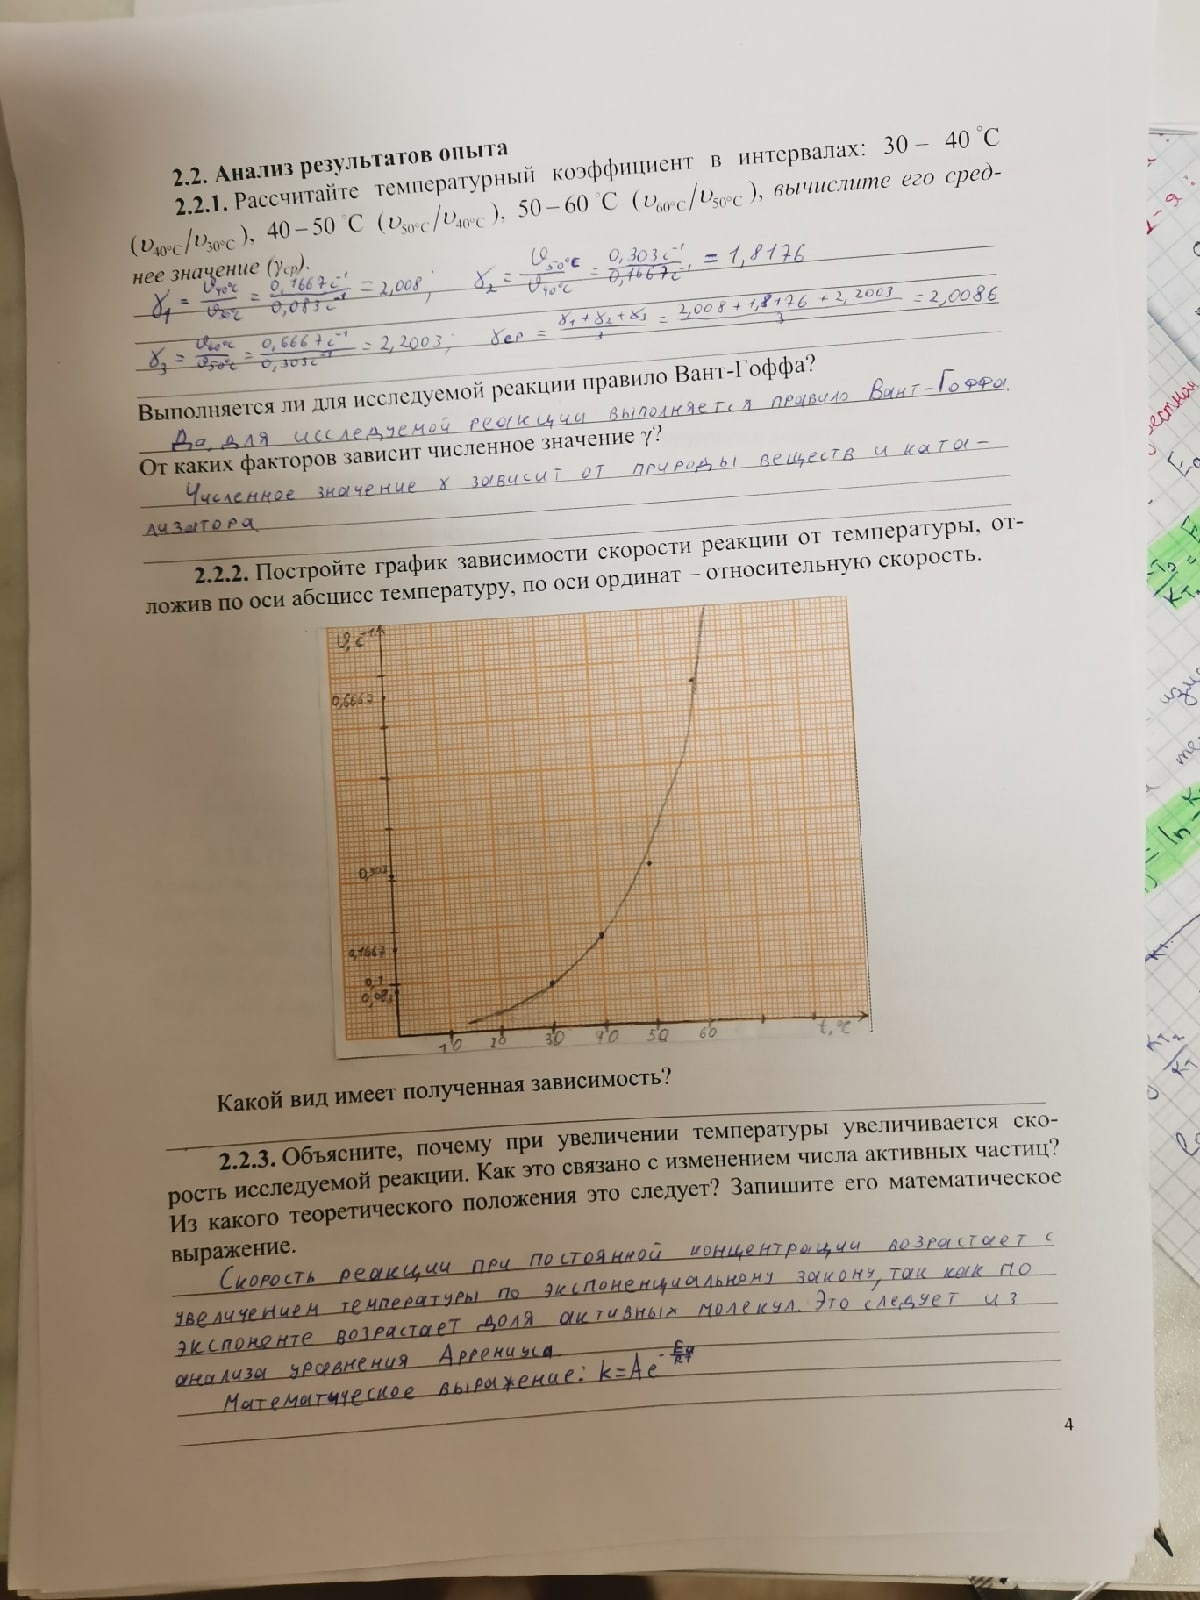 2.2. Анализ результатов опыта
2.2.1. Рассчитайте температурный коэффициент в интервалах: 30 – 40 °C
(υ40°C/υ30°C), 40 – 50 °C (υ50°C/υ40°C), 50 – 60 °C (υ60°C/υ50°C), вычислите его сред-
нее значение (γср).
γ1 = υ40°C/υ30°C = 0,1667c⁻¹/0,083c⁻¹ = 2,008; γ2 = υ50°C/υ40°C = 0,303c⁻¹/0,1667c⁻¹ = 1,8176
γ3 = υ60°C/υ50°C = 0,6667c⁻¹/0,303c⁻¹ = 2,2003; γср = γ1 + γ2 + γ3/3 = 2,008 + 1,8176 + 2,2003/3 = 2,0086
Выполняется ли для исследуемой реакции правило Вант-Гоффа?
Да, для исследуемой реакции выполняется правило Вант-Гоффа.
От каких факторов зависит численное значение γ?
Численное значение γ зависит от природы веществ и ката-
лизатора
2.2.2. Постройте график зависимости скорости реакции от температуры, от-
ложив по оси абсцисс температуру, по оси ординат – относительную скорость.
υ, c⁻¹
0,6667
0,303
0,1667
0,1
0,083
10 20 30 40 50 60 t, °C
Какой вид имеет полученная зависимость?
2.2.3. Объясните, почему при увеличении температуры увеличивается ско-
рость исследуемой реакции. Как это связано с изменением числа активных частиц?
Из какого теоретического положения это следует? Запишите его математическое
выражение.
Скорость реакции при постоянной концентрации возрастает с
увеличением температуры по экспоненциальному закону, так как по
экспоненте возрастает доля активных молекул. Это следует из
анализа уравнения Аррениуса.
Математическое выражение: k=Ae^-Ea/RT
4